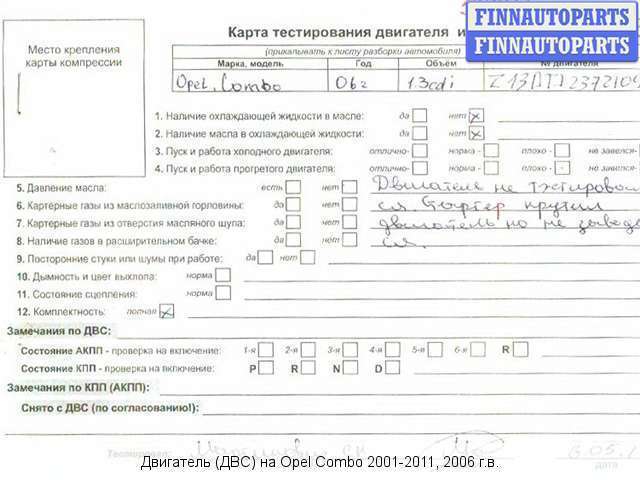 Карта тестирования двигателя и
FINNAUTOPARTS
FINNAUTOPARTS
Место крепления
карты компрессии
(прикалывать к листу разборки автомобиля)
Марка, модель Год Объём № двигателя
Opel, Combo 06г 1.3cdi
1. Наличие охлаждающей жидкости в масле: да нет x
2. Наличие масла в охлаждающей жидкости: да нет x
3. Пуск и работа холодного двигателя: отлично- норма - плохо - не завелся-
4. Пуск и работа прогретого двигателя: отлично- норма - плохо - не завелся-
5. Давление масла: есть нет Двигатель не тестировал
6. Картерные газы из маслозаливной горловины: да нет ся. Стартер крутил
7. Картерные газы из отверстия масляного щупа: да нет двигатель но не завод
8. Наличие газов в расширительном бачке: да нет ся.
9. Посторонние стуки или шумы при работе: да нет
10. Дымность и цвет выхлопа: норма
11. Состояние сцепления: норма
12. Комплектность: полная x
Замечания по ДВС:
Состояние АКПП - проверка на включение: 1-я 2-я 3-я 4-я 5-я 6-я R
Состояние КПП - проверка на включение: P R N D
Замечания по КПП (АКПП):
Снято с ДВС (по согласованию!):
Тестировал:
Двигатель (ДВС) на Opel Combo 2001-2011, 2006 г.в.